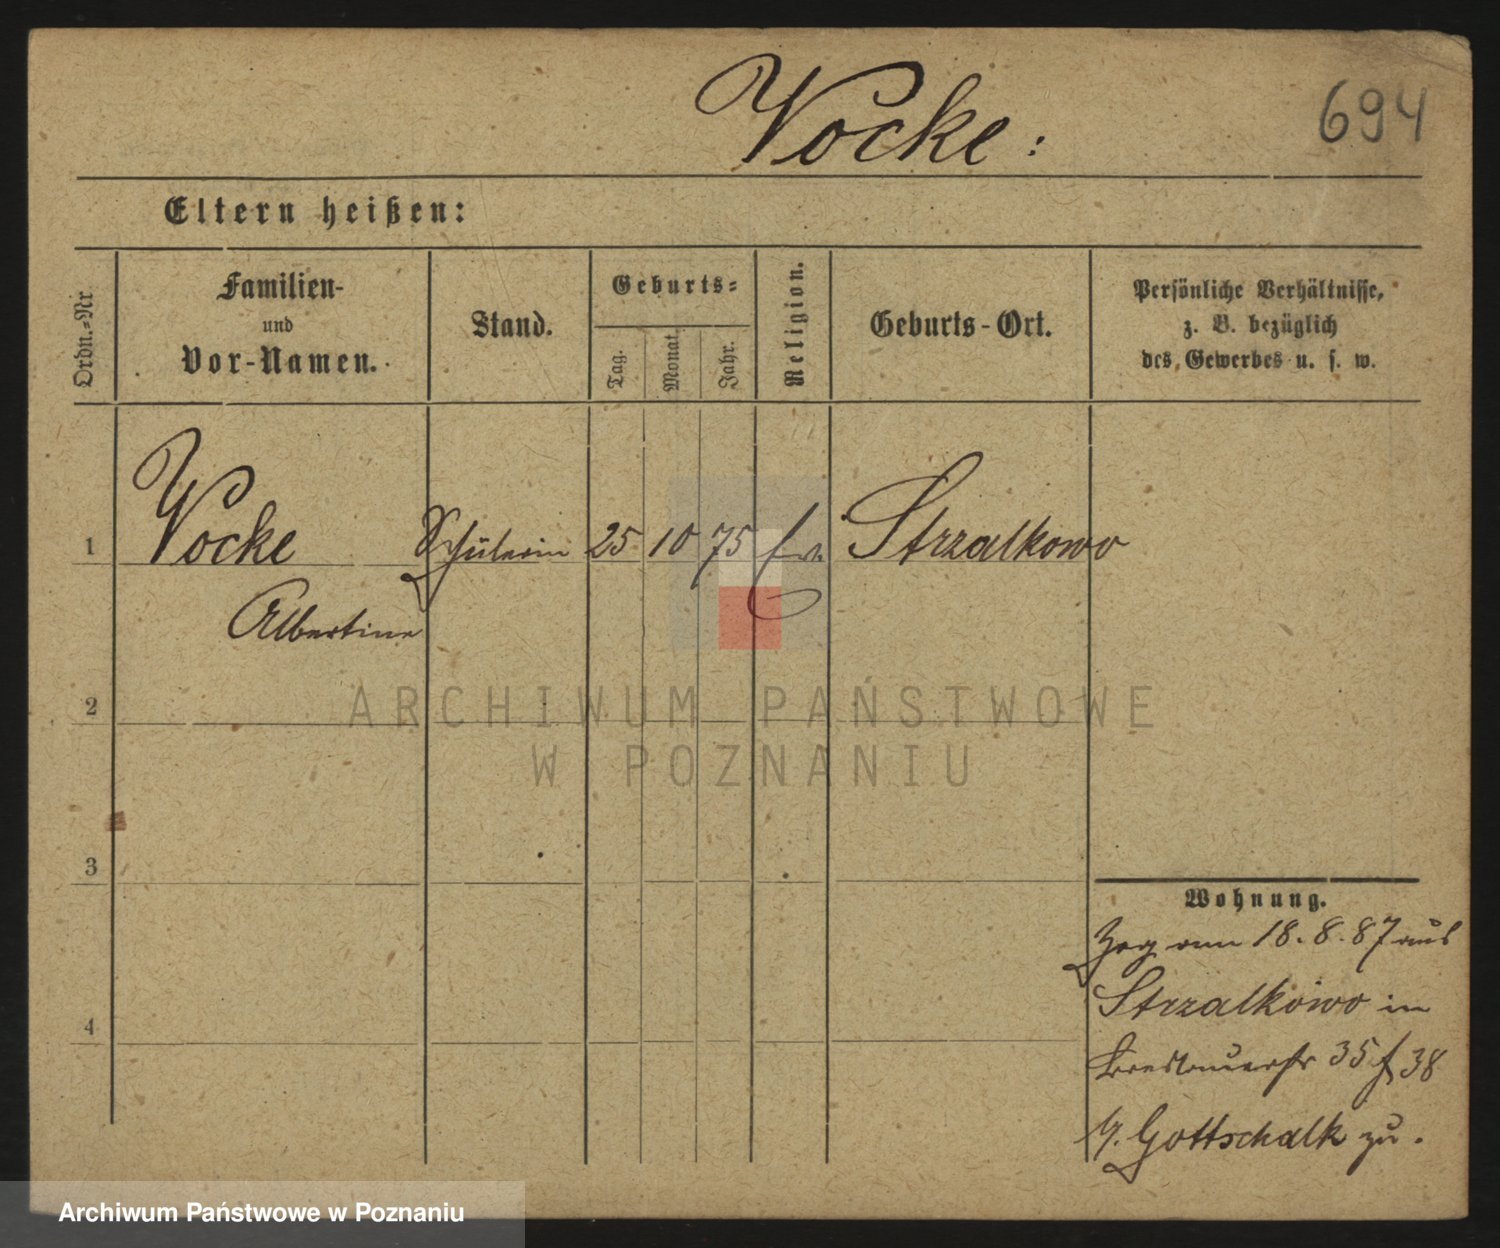 Vocke:
694
Eltern heißen:
Ordn.-Nr
Familien-
und
Vor-Namen.
Stand.
Geburts-
Tag.
Monat
Jahr.
Religion.
Geburts-Ort.
Persönliche Verhältnisse,
z. B. bezüglich
des Gewerbes u. s. w.
1 Vocke Schülerin 25 10 75 Strzalkowo
Albertine
2
3
4
Wohnung.
Zog am 18.8.87 aus
Strzalkowo in
Breslauerstr 35 38
Gottschalk zu.
ARCHIWUM PAŃSTWOWE
W POZNANIU
Archiwum Państwowe w Poznaniu